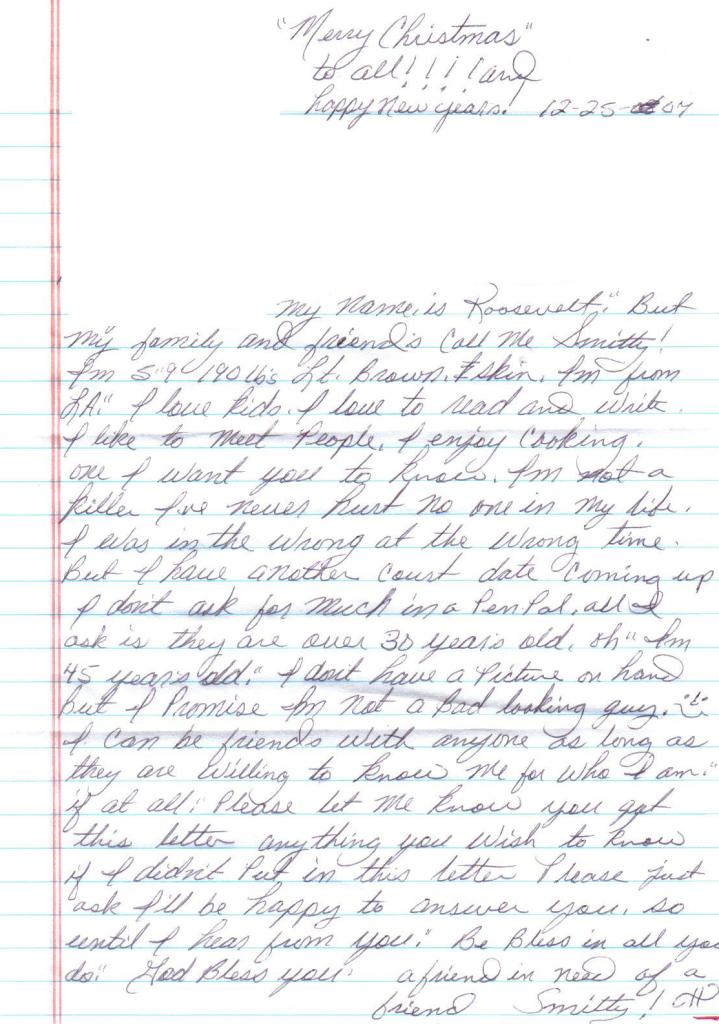 "Merry Christmas"
to all!!!! and
happy New years! 12-25-07
My Name, is Roosevelt." But
My family and friend's Call Me Smitty!
I'm 5"9 190 lbs Lt. Brown. skin. I'm from
LA." I love kids. I love to read and write.
I like to Meet People. I enjoy Cooking.
one I want you to know. I'm not a
killer I've never hurt no one in my life.
I was in the wrong at the wrong time.
But I have another Court date Coming up
I don't ask for Much in a Pen Pal. all I
ask is they are over 30 years old. oh" I'm
45 years old." I don't have a Picture on hand
but I Promise I'm Not a Bad looking guy.
I Can be friends with anyone as long as
they are willing to know me for who I am."
if at all." Please let Me know you got
this letter anything you wish to know
if I didn't Put in this letter Please just
ask I'll be happy to answer you. so
until I hear from you." Be Bless in all you
do." God Bless you. a friend in need of a
friend Smitty!